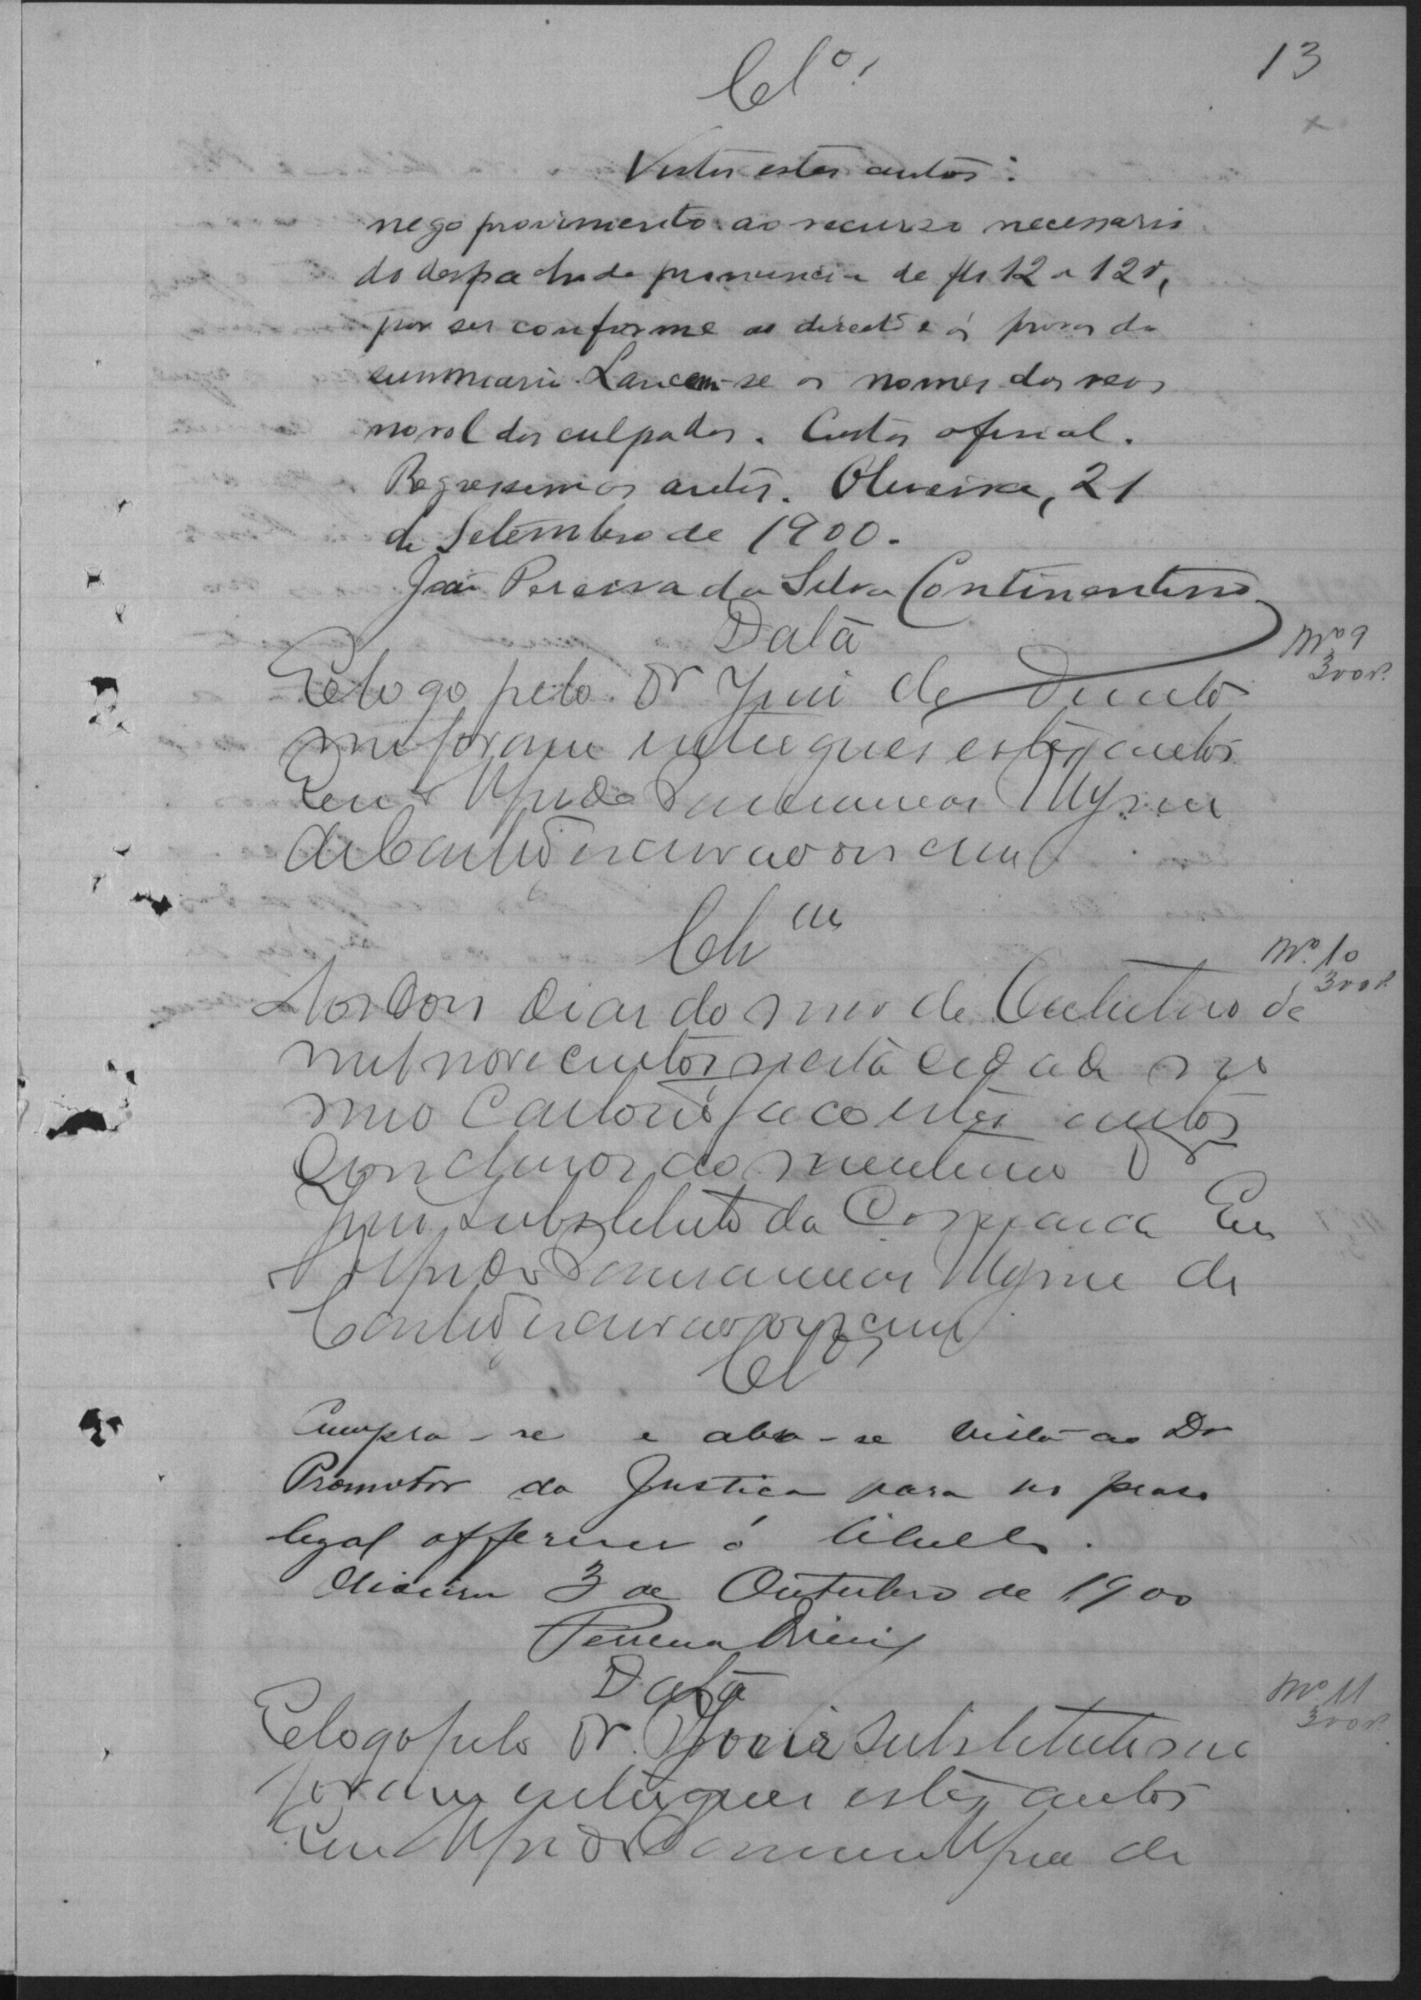 13
Cl.os
Vistos estes autos:
nego provimento ao recurso necessario
do despacho de pronuncia de fls 12 a 12v,
por ser conforme ao direito e ás provas do
summario. Lancem-se os nomes dos reos
no rol dos culpados. Custas afinal.
Regressem os autos. Oliveira, 21
de Setembro de 1900.
João Pereira da Silva Continentino
Data
No 9
300 r.
E logo pelo Dr Juiz de Direito
me foram entregues estes autos
Eu Alfredo
de Castro escrivão o escrevi
Clos
No. 10
300 r.
Aos dois dias do mez de Outubro de
mil novecentos nesta cidade em
meo Cartorio faco estes autos
conclusos ao meritissimo
Juiz Substituto da Comarca Eu
Alfredo de
Castro escrivão o escrevi
Clos
Cumpra-se e abra-se vista ao Dr
Promotor da Justica para no praso
legal offerecer o libello.
Oliveira 3 de Outubro de 1900
Data
No. 11
300 r.
E logo pelo Dr. Juiz Substituto me
foram entregues estes autos
Eu Alfredo de